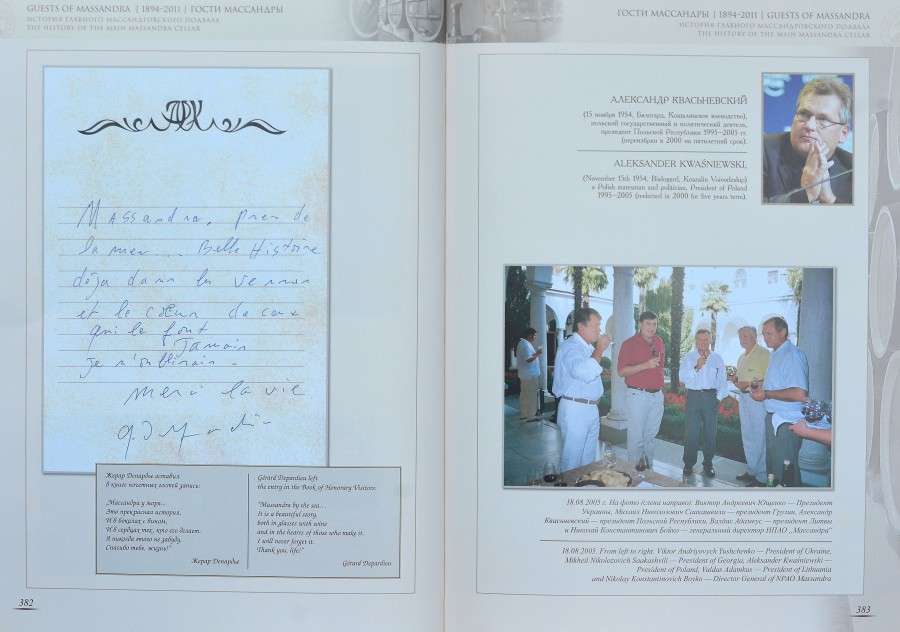 GUESTS OF MASSANDRA | 1894–2011 | ГОСТИ МАССАНДРЫ
ИСТОРИЯ ГЛАВНОГО МАССАНДРОВСКОГО ПОДВАЛА
THE HISTORY OF THE MAIN MASSANDRA CELLAR
Massandra, pres de
la mer... Belle Histoire
déja dans les verres
et le cœur de ceux
qui le font
Jamais
Je n'oublierais.
merci la vie
Жерар Депардье оставил
в книге почетных гостей запись:
„Массандра у моря...
Это прекрасная история,
И в бокалах с вином,
И в сердцах тех, кто его делает.
Я никогда этого не забуду,
Спасибо тебе, жизнь!"
Жерар Депардье
Gérard Depardieu left
the entry in the Book of Honorary Visitors:
"Massandra by the sea....
It is a beautiful story,
both in glasses with wine
and in the hearts of those who make it.
I will never forget it.
Thank you, life!"
Gérard Depardieu
382
ГОСТИ МАССАНДРЫ | 1894–2011 | GUESTS OF MASSANDRA
ИСТОРИЯ ГЛАВНОГО МАССАНДРОВСКОГО ПОДВАЛА
THE HISTORY OF THE MAIN MASSANDRA CELLAR
АЛЕКСАНДР КВАСЬНЕВСКИЙ
(15 ноября 1954, Бялогард, Кошалинское воеводство),
польский государственный и политический деятель,
президент Польской Республики 1995–2005 гг.
(переизбран в 2000 на пятилетний срок).
ALEKSANDER KWAŚNIEWSKI,
(November 15th 1954, Białogard, Koszalin Voivodeship)
a Polish statesman and politician, President of Poland
1995–2005 (reelected in 2000 for five years term).
18.08.2005 г. На фото (слева направо): Виктор Андреевич Ющенко — Президент
Украины, Михаил Николозович Саакашвили — президент Грузии, Александр
Квасьневский — президент Польской Республики, Валдас Адамкус — президент Литвы
и Николай Константинович Бойко — генеральный директор НПАО „Массандра"
18.08.2005. From left to right. Viktor Andriyovych Yushchenko — President of Ukraine,
Mikheil Nikolozovich Saakashvili — President of Georgia, Aleksander Kwaśniewski —
President of Poland, Valdas Adamkus — President of Lithuania
and Nikolay Konstantinovich Boyko — Director General of NPAO Massandra
383